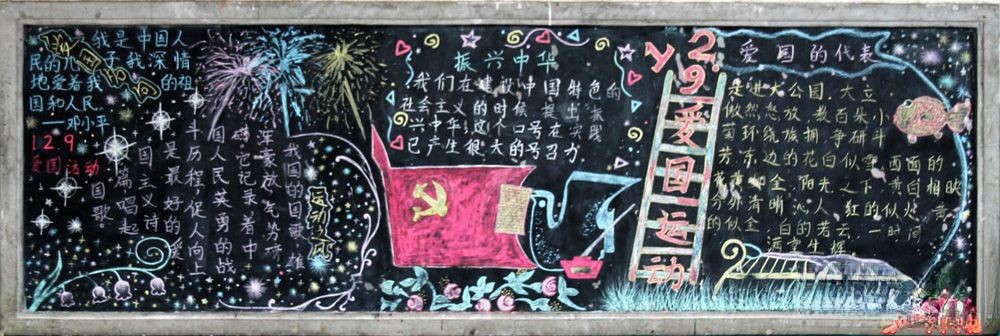 我是中国人
民的儿子我深情
地爱着我的祖
国和人民。
——邓小平
12.9
爱国活动
我国的国歌雄
浑豪放气势磅
礴,它记录着中
国人民英勇的战
斗历程,促人向上
是最好的爱
国主义诗
篇唱起
国歌。
运动之风
振兴中华
我们在建设中国特色的
社会主义的时候提出振
兴中华!这个口号在实践
已产生很大的号召力
y 2.9
爱国运动
爱国的代表
是进大公园,大立
傲然怒放 数百朵小
菊环绕族拥,争研斗
芳,东边的花白似雪,西面的
黄如金,阳光之下,黄白相映
分外清晰沁人,红的似火,黄
的似金,白的若云,一时间
满京生辉